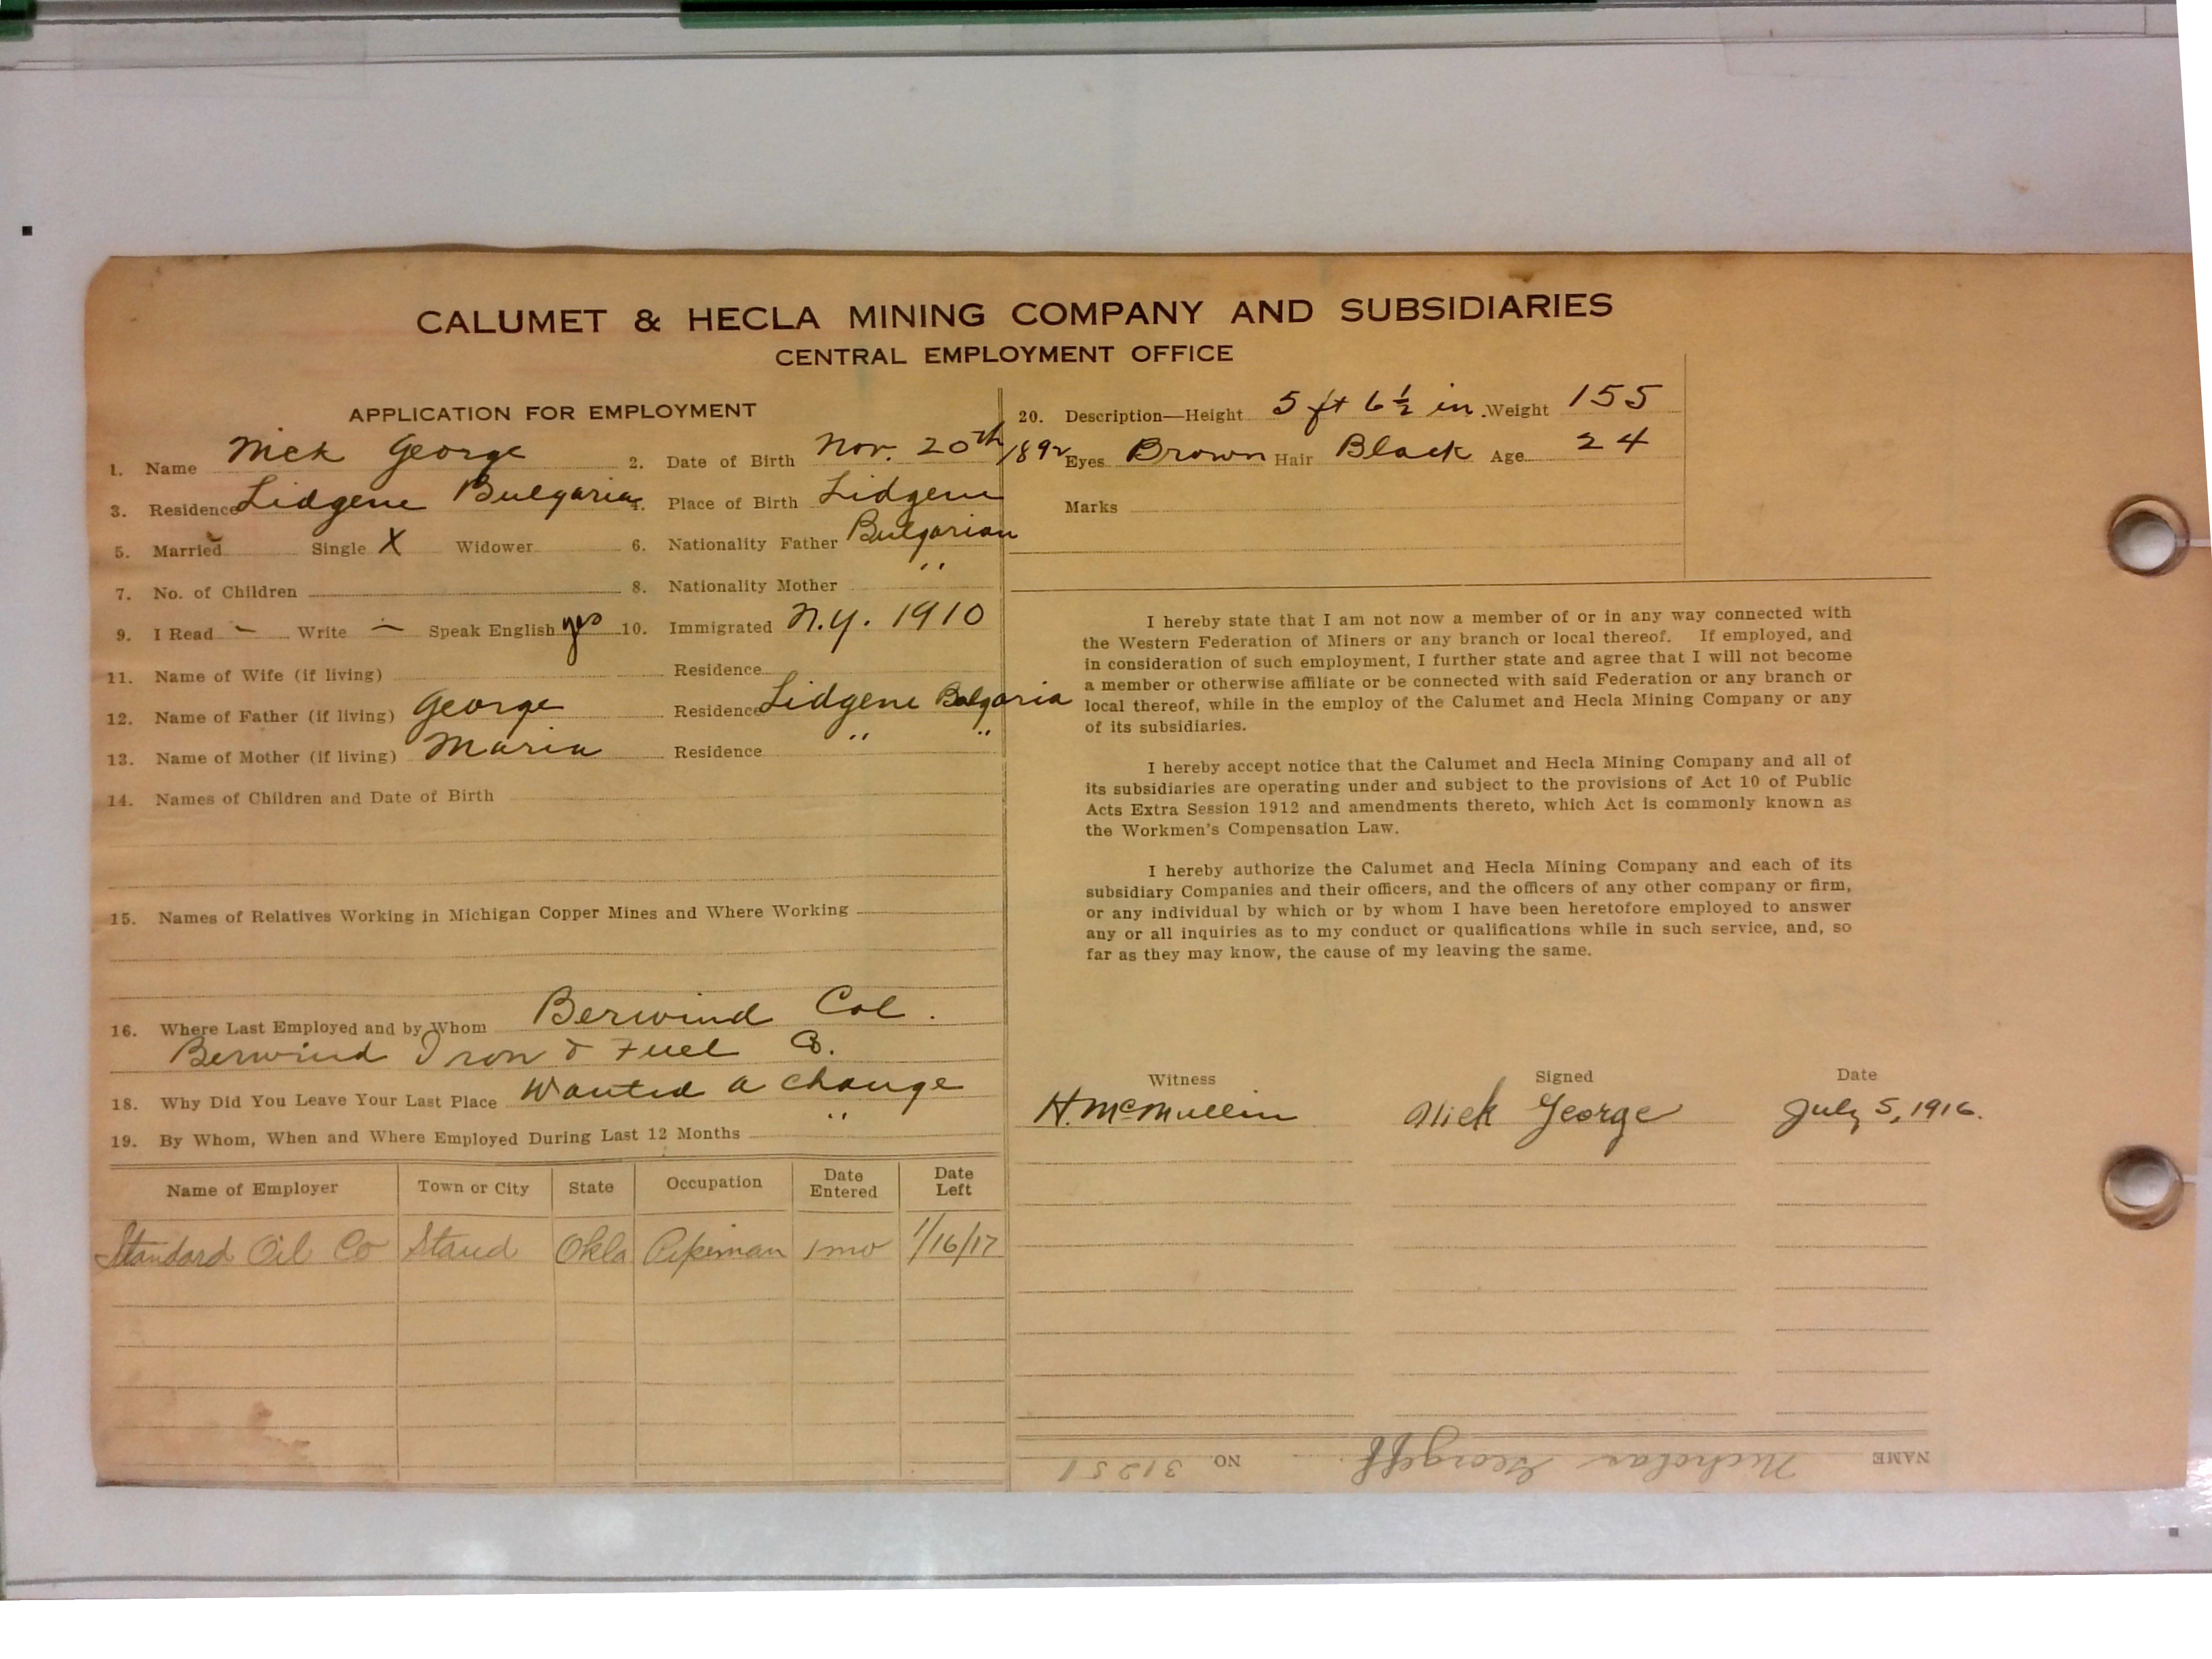 CALUMET & HECLA MINING COMPANY AND SUBSIDIARIES
CENTRAL EMPLOYMENT OFFICE
APPLICATION FOR EMPLOYMENT
1. Name Nick George 2. Date of Birth Nov. 20th 1892
3. Residence Lidgene Bulgaria 4. Place of Birth Lidgene
5. Married Single X Widower 6. Nationality Father Bulgarian
7. No. of Children 8. Nationality Mother "
9. I Read – Write – Speak English yes 10. Immigrated N.Y. 1910
11. Name of Wife (if living) Residence
12. Name of Father (if living) George Residence Lidgene Bulgaria
13. Name of Mother (if living) Maria Residence " "
14. Names of Children and Date of Birth
15. Names of Relatives Working in Michigan Copper Mines and Where Working
16. Where Last Employed and by Whom Berwind Col.
Berwind Iron & Fuel Co.
18. Why Did You Leave Your Last Place Wanted a change
19. By Whom, When and Where Employed During Last 12 Months "
Name of Employer Town or City State Occupation Date Entered Date Left
Standard Oil Co Staud Okla Pipeman 1 mo 1/16/17
20. Description—Height 5 ft 6 ½ in. Weight 155
Eyes Brown Hair Black Age 24
Marks
I hereby state that I am not now a member of or in any way connected with
the Western Federation of Miners or any branch or local thereof. If employed, and
in consideration of such employment, I further state and agree that I will not become
a member or otherwise affiliate or be connected with said Federation or any branch or
local thereof, while in the employ of the Calumet and Hecla Mining Company or any
of its subsidiaries.
I hereby accept notice that the Calumet and Hecla Mining Company and all of
its subsidiaries are operating under and subject to the provisions of Act 10 of Public
Acts Extra Session 1912 and amendments thereto, which Act is commonly known as
the Workmen's Compensation Law.
I hereby authorize the Calumet and Hecla Mining Company and each of its
subsidiary Companies and their officers, and the officers of any other company or firm,
or any individual by which or by whom I have been heretofore employed to answer
any or all inquiries as to my conduct or qualifications while in such service, and, so
far as they may know, the cause of my leaving the same.
Witness Signed Date
H. McMullin Nick George July 5, 1916.
NAME Nicholas Georgeff NO. 31251